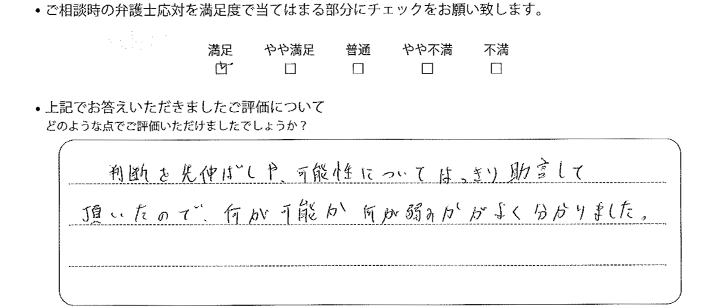 • ご相談時の弁護士応対を満足度で当てはまる部分にチェックをお願い致します。
満足 やや満足 普通 やや不満 不満
☑ □ □ □ □
• 上記でお答えいただきましたご評価について
どのような点でご評価いただけましたでしょうか？
判断を先伸ばしや、可能性についてはっきり助言して
頂いたので、何が可能か何が弱みかがよく分かりました。